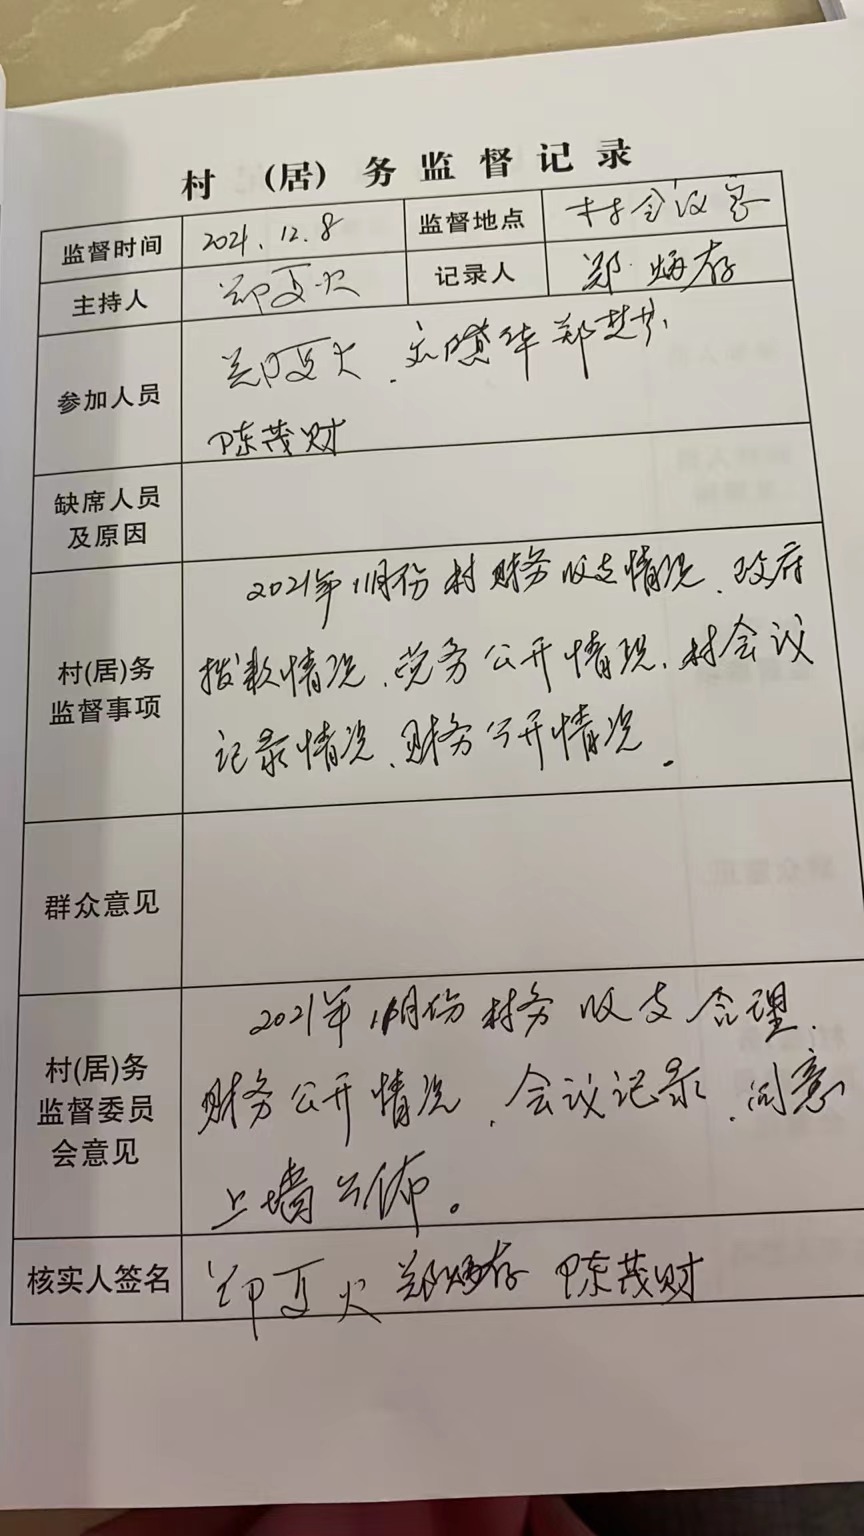 村（居）务监督记录
监督时间 2021.12.8 监督地点 村会议室
主持人 郑夏火 记录人 郑炳存
参加人员 郑夏火、郑楚芬、
陈茂财
缺席人员
及原因
2021年11月份村财务收支情况、政府
村(居)务
监督事项
拨款情况、党务公开情况、村会议
记录情况、财务公开情况。
群众意见
2021年11月份村务收支合理、
村(居)务
监督委员
会意见
财务公开情况、会议记录、同意
上墙公佈。
核实人签名 郑夏火 郑炳存 陈茂财